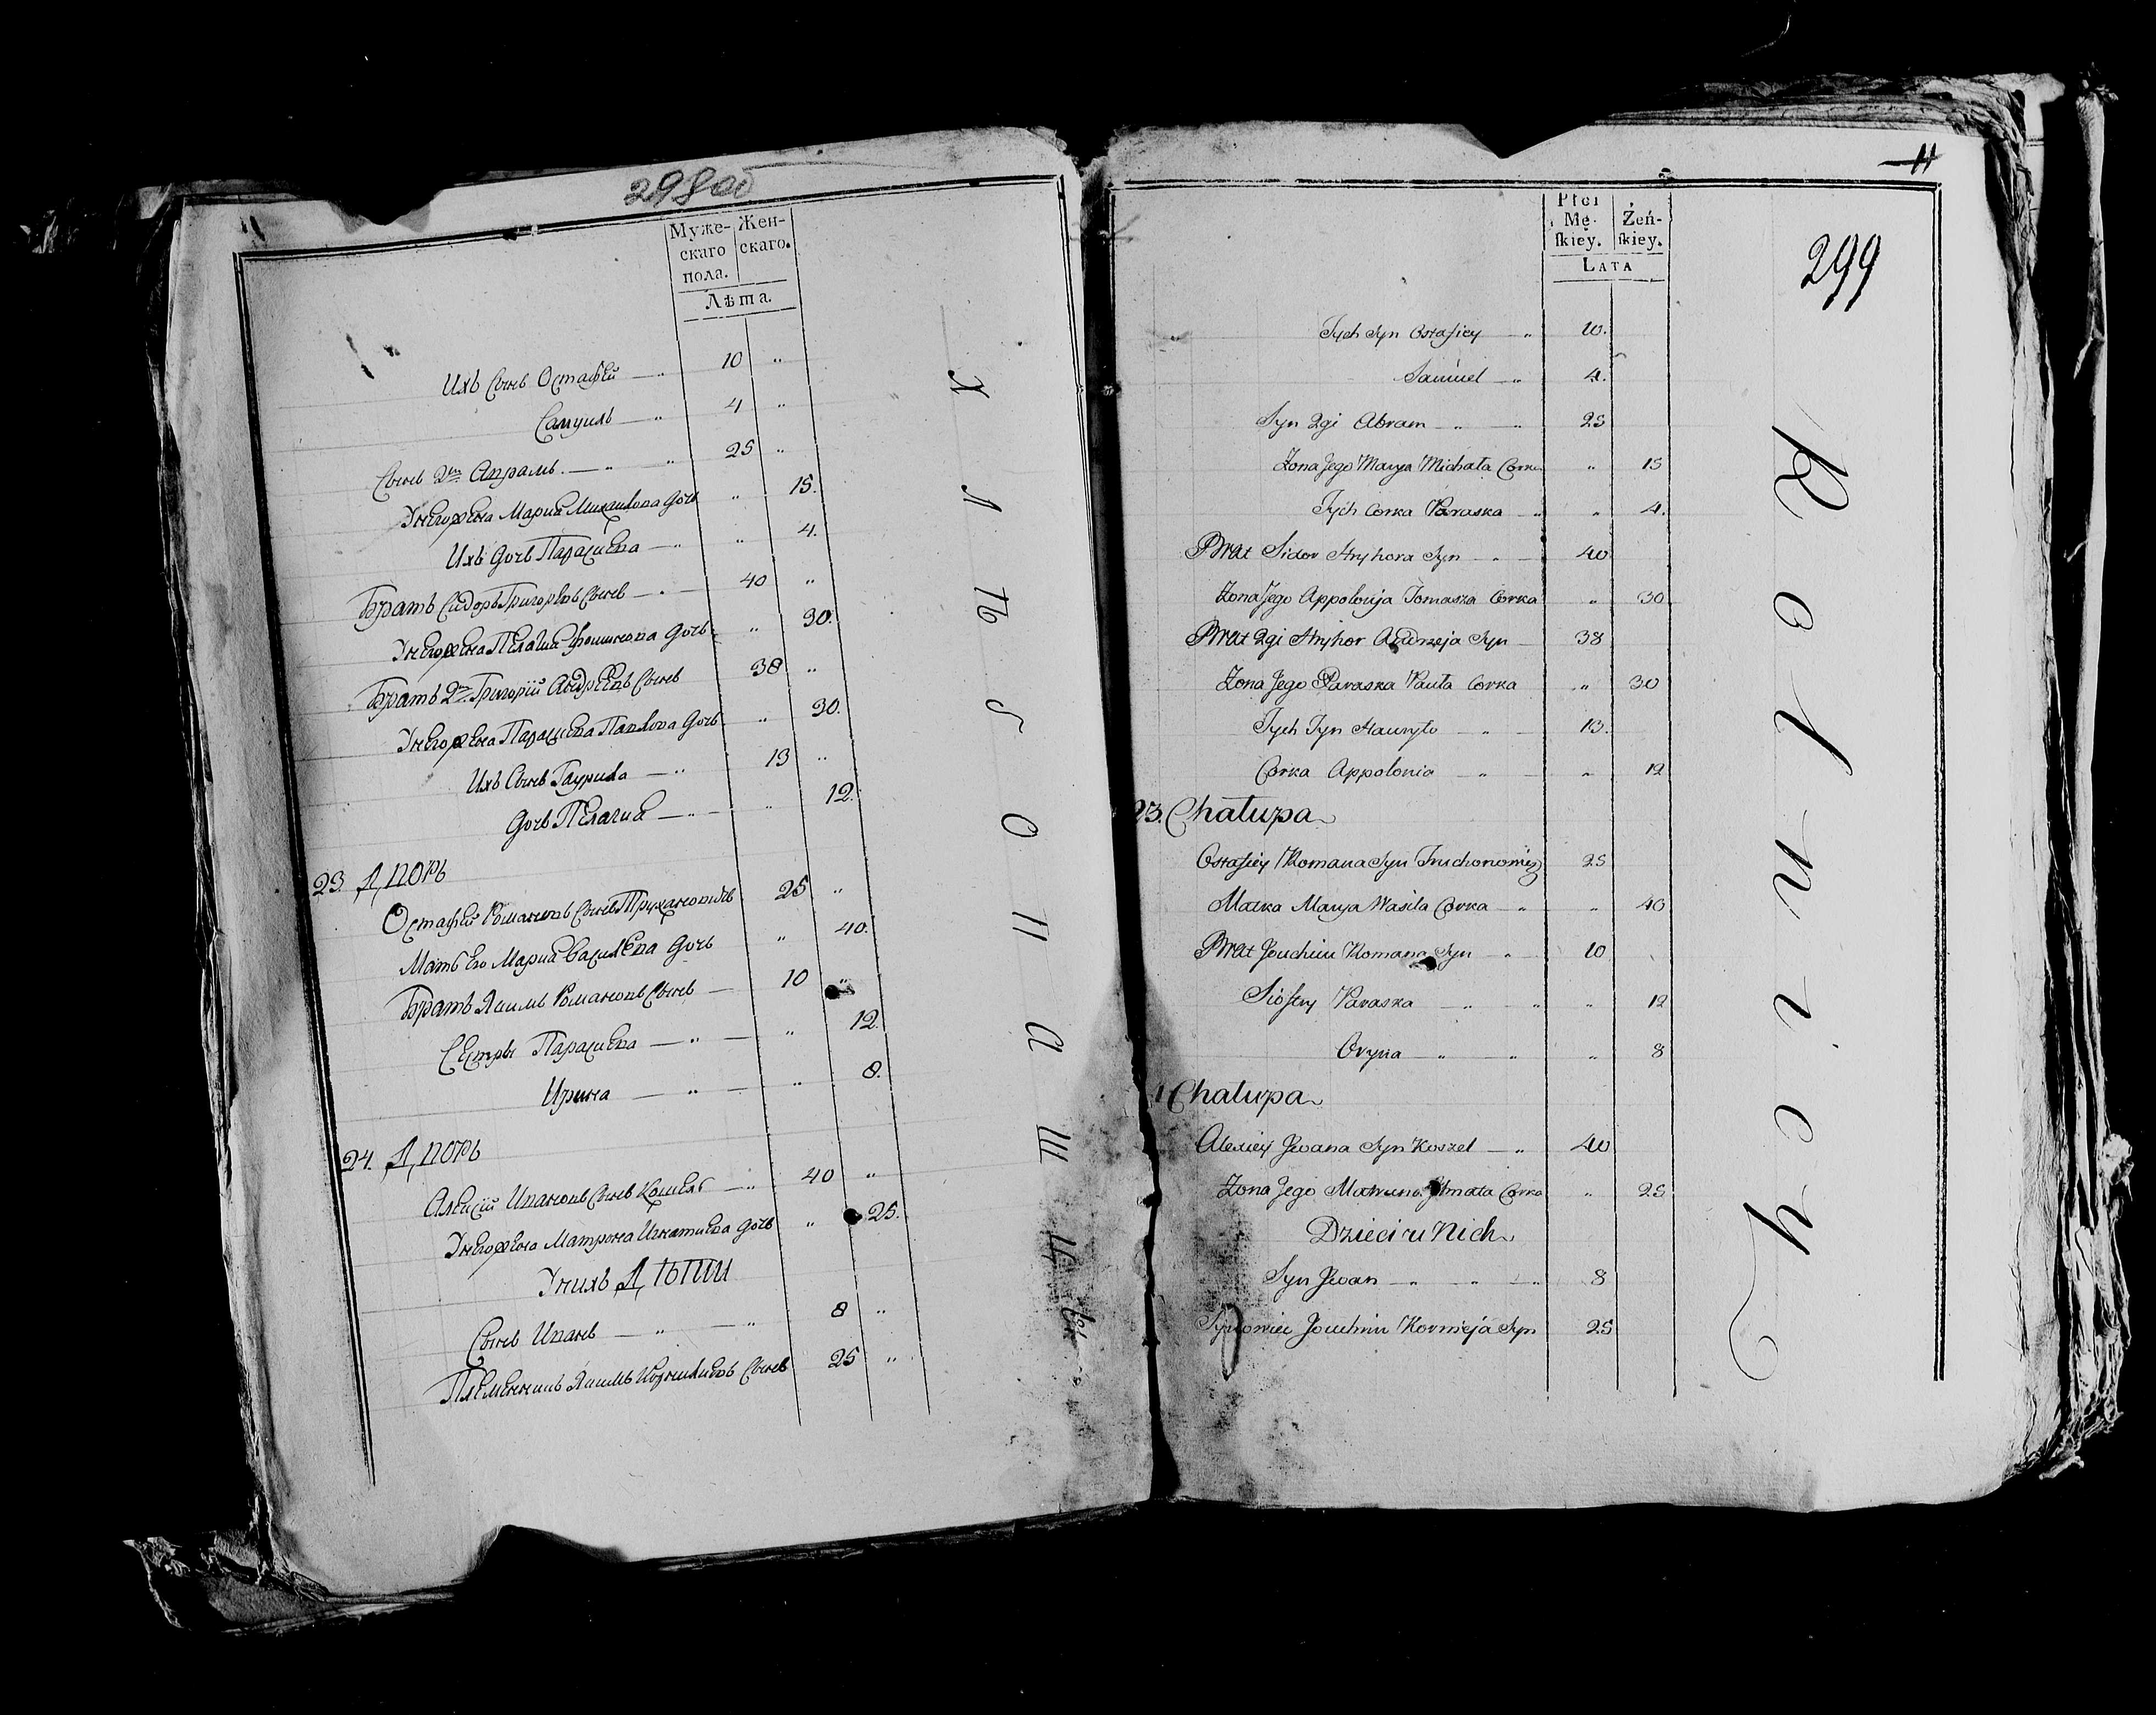 298 об
Муже-
скаго
пола.
Жен-
скаго.
Лѣта.
Ихъ Сынъ Остафей — „ 10 „
Самуилъ — „ 4 „
Сынъ 2й Апрамъ. — „ „ 25 „
У него жена Мария Михаилова дочь „ 15.
Ихъ дочь Парасцева — „ „ 4.
Братъ Сидоръ Григоръевъ Сынъ — „ 40 „
У него жена Пелагия Фомина дочь „ 30.
Братъ 2й Григорiй Андреевъ Сынъ 38 „
У него жена Парасцева Павлова дочь „ 30.
Ихъ Сынъ Гаурила — „ 13 „
дочь Пелагия — „ — „ 12.
23. Дворъ
Остафей Романовъ Сынъ Труханович 25 „
Мать Его Мария Василева дочь „ 40.
Братъ Якимъ Романовъ Сынъ — 10 „
Сестры Парасцева — „ — „ 12.
Ирина — „ — „ 8.
24. Дворъ
Алексiй Ивановъ Сынъ Кошель — „ 40 „
У него жена Матрона Игнатиева дочь „ 25.
У нихъ Дѣти
Сынъ Иванъ — „ — „ 8 „
Племянникъ Якимъ Корнилиевъ Сынъ 25 „
Х л ѣ б о п а ш ц ы
11
299
Płci
Mę-
skiey.
Żeń-
skiey.
Lata
Jych Syn Ostafiey „ 10.
Samuel „ 4.
Syn 2gi Abram „ „ 25
Zona Jego Marya Michała Corka „ 15
Jych Corka Paraska „ „ 4.
Brat Sidor Hryhora Syn „ 40
Zona Jego Appolonija Tomasza Corka „ 30
Brat 2gi Hryhor Andrzeja Syn 38
Zona Jego Paraska Pauła Corka „ 30
Jych Syn Hauryło „ 13.
Corka Appolonia „ „ 12
23. Chałupa
Ostafiey Romana Syn Truchonowicz 25
Matka Marya Wasila Corka „ „ 40
Brat Jouchim Romana Syn „ 10
Siostry Paraska „ „ „ 12
Oryna „ „ „ 8
Chałupa
Alexiey Jwana Syn Koszel „ 40
Zona Jego Matruna Hnata Corka „ 25
Dzieci u Nich
Syn Jwan „ „ „ 8
Synowiec Jouchim Kornieja Syn 25
R o l n i c y